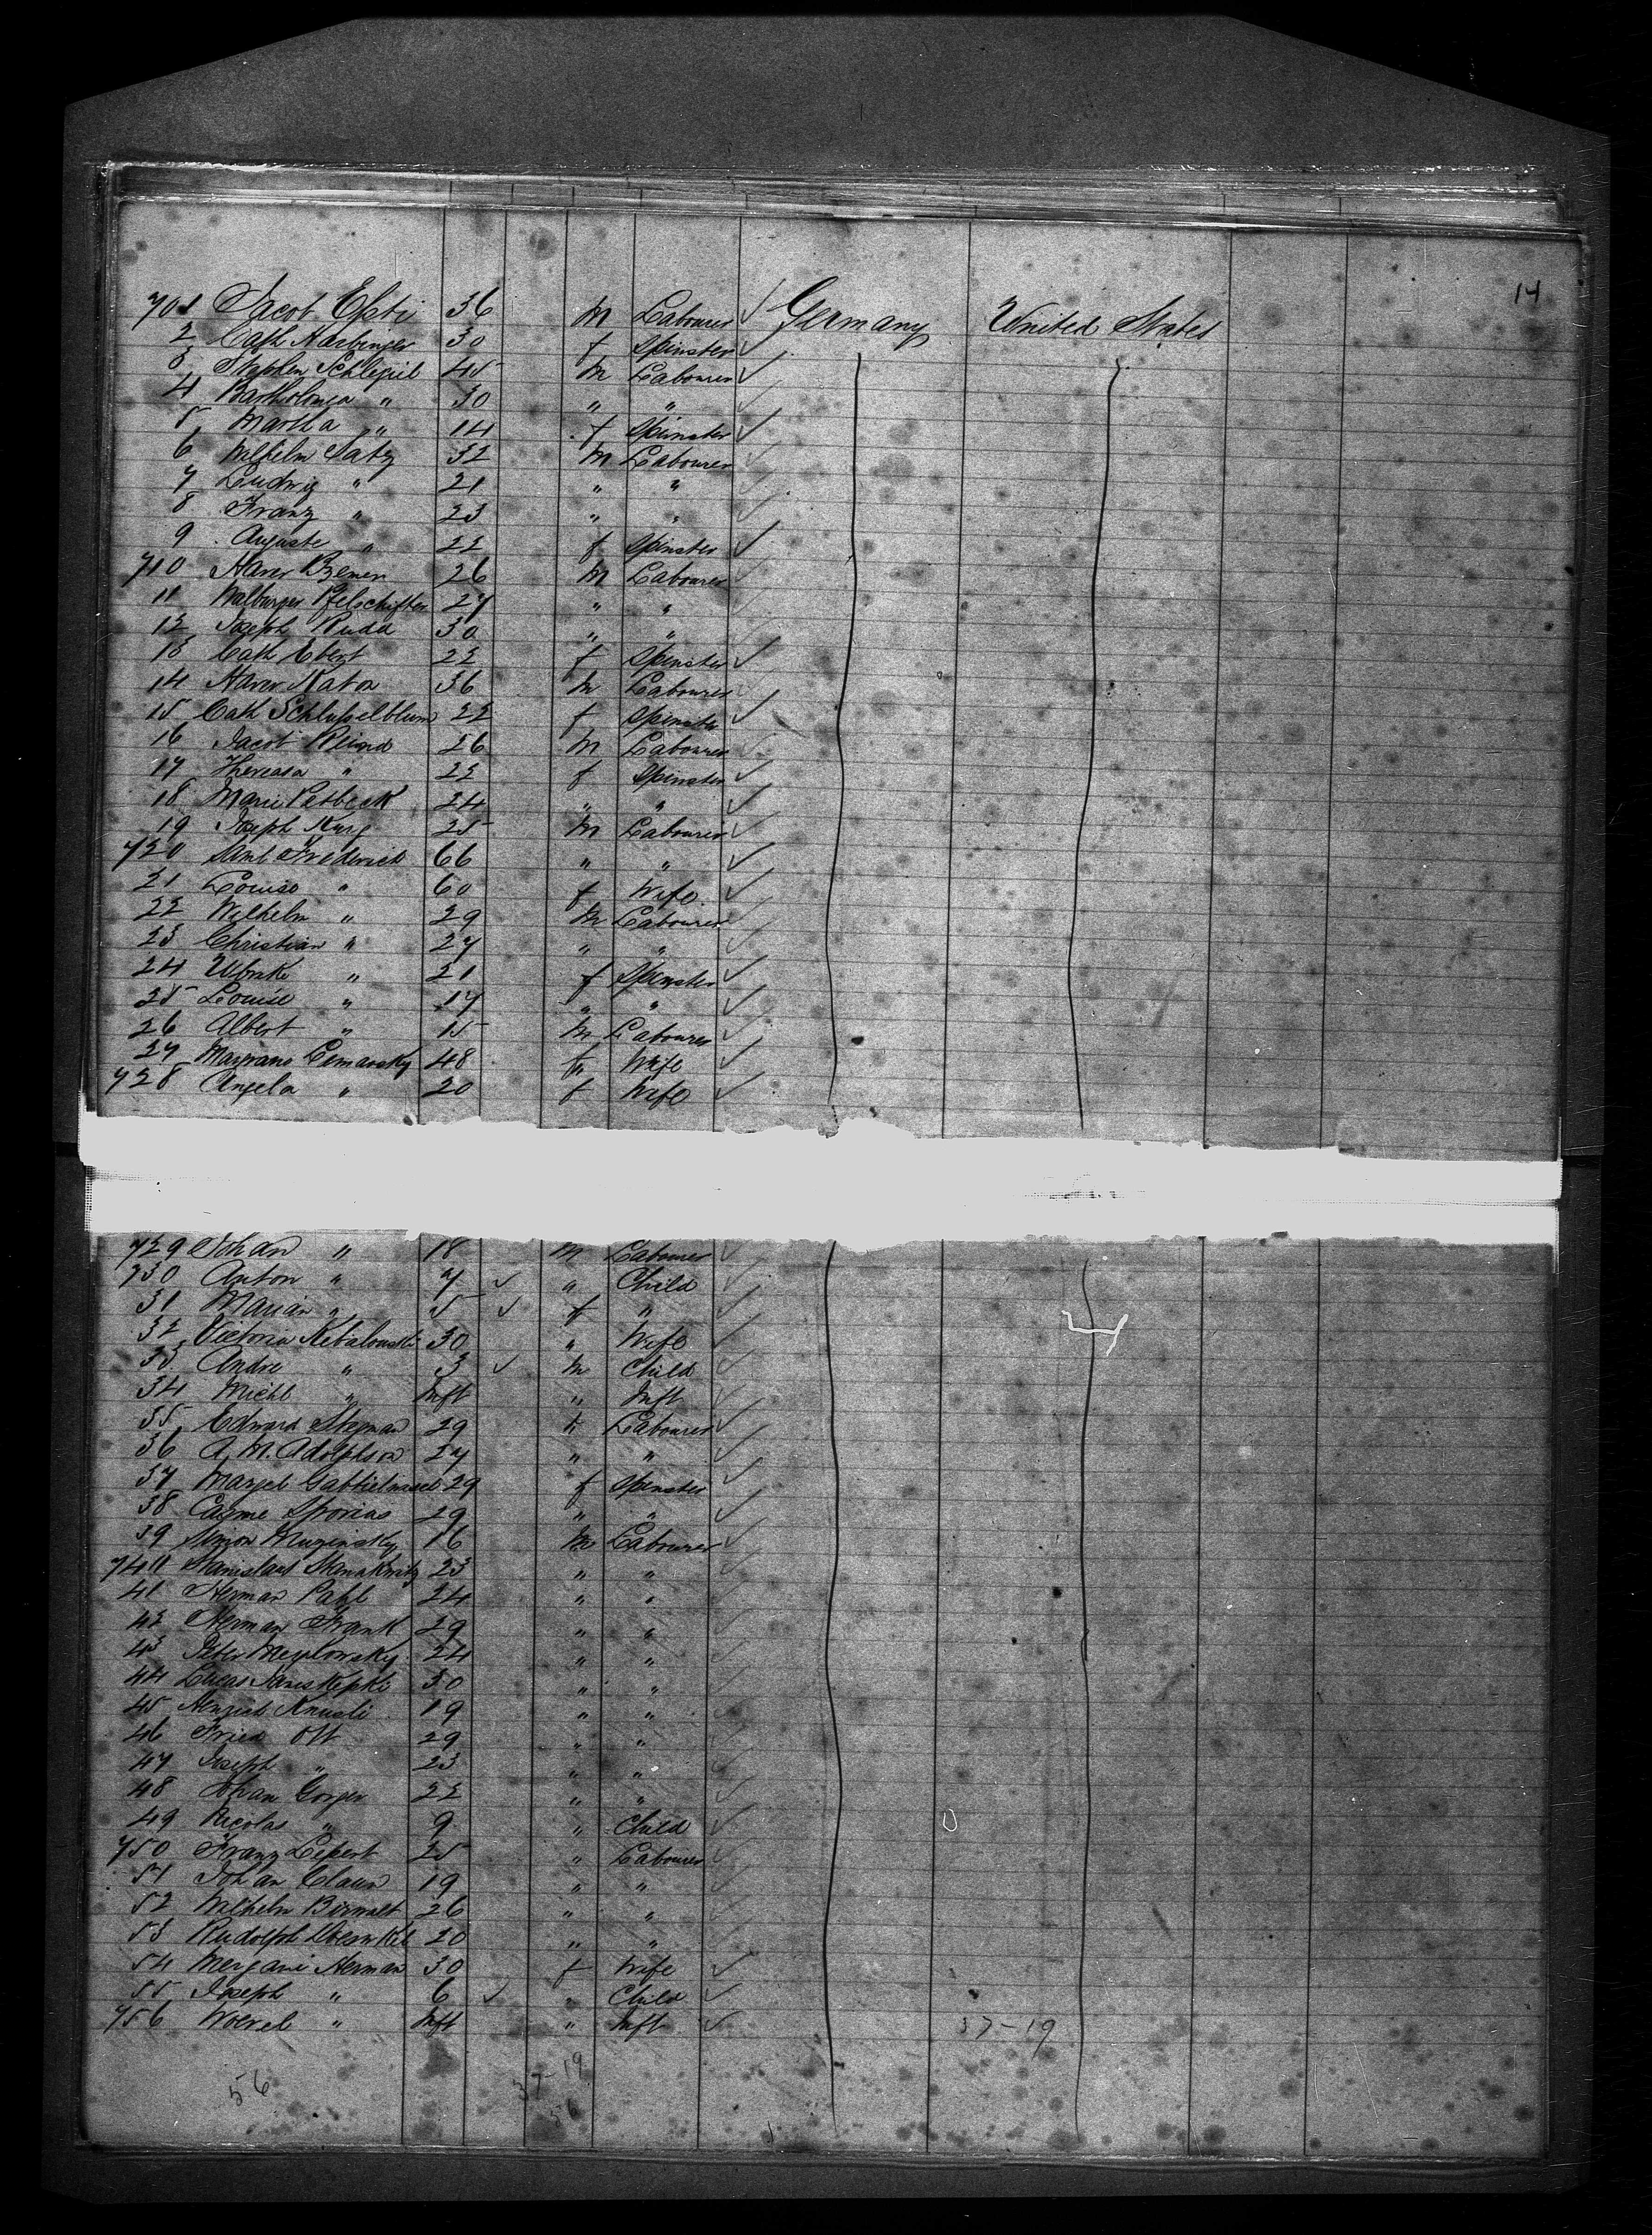 14
701 Jacob Esti 36 m Labourer ✓ Germany United States
2 Cath Harbinger 30 f Spinster ✓
3 Stephen Schlegiel 45 m Labourer ✓
4 Bartholomea " 30 " " ✓
5 Martha " 14 f Spinster ✓
6 Wilhelm Satz 32 m Labourer ✓
7 Ludwig " 21 " " ✓
8 Franz " 23 " " ✓
9 Auguste " 22 f Spinster ✓
710 Xaver 26 m Labourer ✓
11 Walburger Pfelschifter 27 " " ✓
12 Joseph Rudd 30 " " ✓
13 Cath Ebert 22 f Spinster ✓
14 Xaver Kator 36 m Labourer ✓
15 Cath Schlusselblum 22 f Spinster ✓
16 Jacob Reind 26 m Labourer ✓
17 Theresa " 22 f Spinster ✓
18 Marie Patbeck 24 " " ✓
19 Joseph Kurz 25 m Labourer ✓
720 Saml Frederick 66 " " ✓
21 Louise " 60 f Wife ✓
22 Wilhelm " 29 m Labourer ✓
23 Christian " 27 " " ✓
24 Ulbrike " 21 f Spinster ✓
25 Louise " 17 " " ✓
26 Albert " 15 m Labourer ✓
27 Maryrana Lemarsky 48 f Wife ✓
728 Angela " 20 f Wife ✓
729 Johan " 18 m Labourer ✓
730 Anton " 7 ✓ " Child ✓
31 Marian " 5 ✓ f " ✓
32 Victoria Kebalouski 30 " Wife ✓
33 Andre " 3 ✓ m Child ✓
34 Michl " Inft " Inft ✓
35 Edward Stegman 29 " Labourer ✓
36 A. M. Adolphson 27 " " ✓
37 Margel 29 f Spinster ✓
38 Sporias 29 " " ✓
39 Simon Muzinsky 16 m Labourer ✓
740 Stanislaus 23 " " ✓
41 Herman Pahl 24 " " ✓
42 Herman Frank 29 " " ✓
43 Peter Meyslowsky 24 " " ✓
44 Lucas 30 " " ✓
45 Knusli 19 " " ✓
46 Fried Ott 29 " " ✓
47 Joseph " 23 " " ✓
48 Johan Gorgen 22 " " ✓
49 Nicolas " 9 " Child ✓
750 Franz Lepert 25 " Labourer ✓
51 Johan Claun 19 " " ✓
52 Wilhelm Birnalt 26 " " ✓
53 Rudolph 20 " " ✓
54 Mergani Herman 30 f Wife ✓
55 Joseph " 6 ✓ " Child ✓
756 Woerel " Inft " Inft ✓
37-19
56 37-19
56